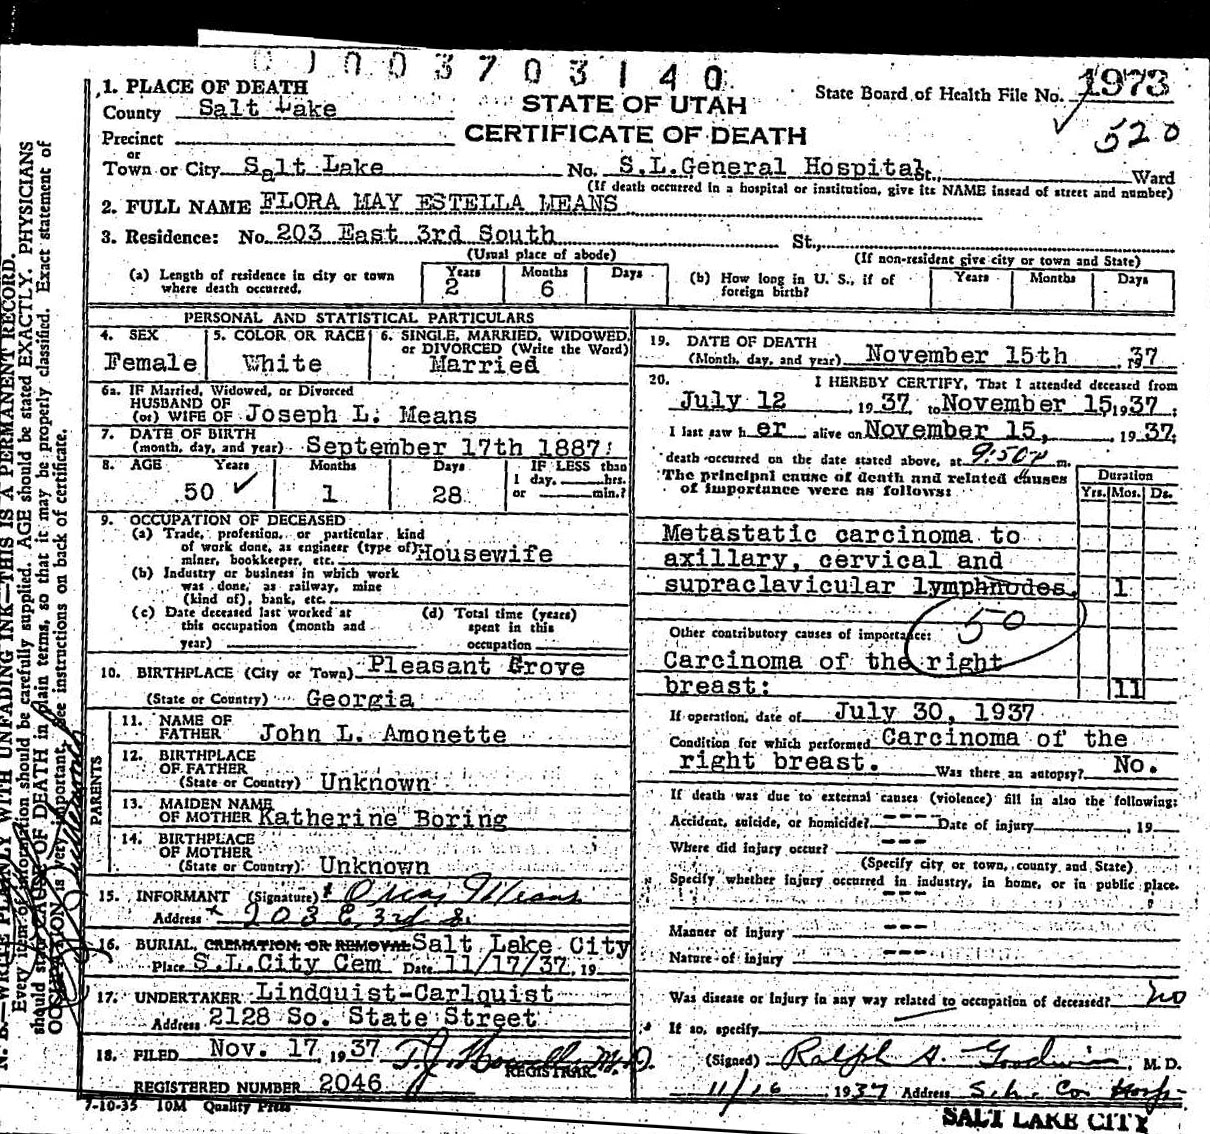 0 0 0 3 7 0 3 1 4 0
1. PLACE OF DEATH
County Salt Lake
STATE OF UTAH
CERTIFICATE OF DEATH
State Board of Health File No. 1973
520
Precinct
or
Town or City Salt Lake No. S.L.General Hospital St., Ward
(If death occurred in a hospital or institution, give its NAME instead of street and number)
2. FULL NAME FLORA MAY ESTELLA MEANS
3. Residence: No. 203 East 3rd South St.,
(Usual place of abode) (If non-resident give city or town and State)
(a) Length of residence in city or town where death occurred. Years 2 Months 6 Days
(b) How long in U. S., if of foreign birth? Years Months Days
PERSONAL AND STATISTICAL PARTICULARS
4. SEX Female
5. COLOR OR RACE White
6. SINGLE, MARRIED, WIDOWED, or DIVORCED (Write the Word) Married
6a. IF Married, Widowed, or Divorced
HUSBAND OF
(or) WIFE OF Joseph L. Means
7. DATE OF BIRTH
(month, day, and year) September 17th 1887
8. AGE Years 50 ✓ Months 1 Days 28 IF LESS than
1 day, hrs.
or min.?
9. OCCUPATION OF DECEASED
(a) Trade, profession, or particular kind
of work done, as engineer (type of)
miner, bookkeeper, etc. Housewife
(b) Industry or business in which work
was done, as railway, mine
(kind of), bank, etc.
(c) Date deceased last worked at
this occupation (month and
year)
(d) Total time (years)
spent in this
occupation
10. BIRTHPLACE (City or Town) Pleasant Grove
(State or Country) Georgia
PARENTS
11. NAME OF
FATHER John L. Amonette
12. BIRTHPLACE
OF FATHER
(State or Country) Unknown
13. MAIDEN NAME
OF MOTHER Katherine Boring
14. BIRTHPLACE
OF MOTHER
(State or Country) Unknown
15. INFORMANT (Signature) x Oscar Means
Address x 203 E. 3rd S.
16. BURIAL, CREMATION, OR REMOVAL Salt Lake City
Place S.L.City Cem Date 11/17/37, 19
17. UNDERTAKER Lindquist-Carlquist
Address 2128 So. State Street
18. FILED Nov. 17, 1937 M.D.
REGISTRAR.
REGISTERED NUMBER 2046
7-10-35 10M Quality Press
19. DATE OF DEATH
(Month, day, and year) November 15th, 1937
20. I HEREBY CERTIFY, That I attended deceased from
July 12, 1937 to November 15, 1937;
I last saw her alive on November 15, 1937;
death occurred on the date stated above, at 9:50 p m.
The principal cause of death and related causes
of importance were as follows:
Duration
Yrs. Mos. Ds.
Metastatic carcinoma to
axillary, cervical and
supraclavicular lymphnodes. 1
50
Other contributory causes of importance:
Carcinoma of the right
breast: 11
If operation, date of July 30, 1937
Condition for which performed Carcinoma of the
right breast. Was there an autopsy? No.
If death was due to external causes (violence) fill in also the following:
Accident, suicide, or homicide? --- Date of injury , 19
Where did injury occur? ---
(Specify city or town, county and State)
Specify whether injury occurred in industry, in home, or in public place.
---
Manner of injury ---
Nature of injury ---
Was disease or injury in any way related to occupation of deceased? no
If so, specify
(Signed) Ralph A. Goodwin, M. D.
11/16 1937 Address S. L. Co. Hosp.
SALT LAKE CITY
N. B.—WRITE PLAINLY WITH UNFADING INK—THIS IS A PERMANENT RECORD.
Every item of information should be carefully supplied. AGE should be stated EXACTLY. PHYSICIANS
should state CAUSE OF DEATH in plain terms, so that it may be properly classified. Exact statement of
OCCUPATION is very important. See instructions on back of certificate.